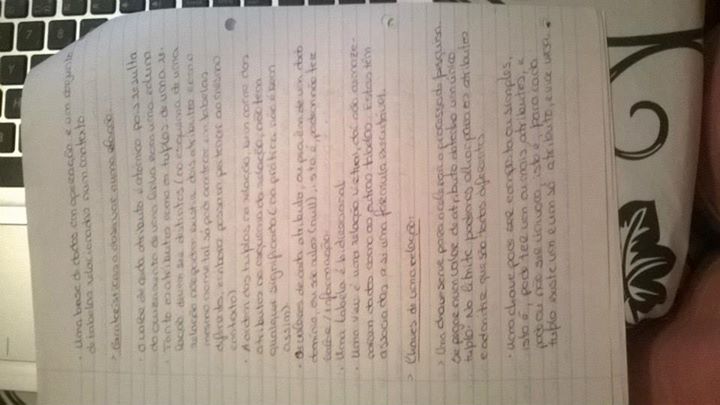 • Uma base de dados em operação é um conjunto
de tabelas relacionadas num contexto.
> Características a observar numa relação:
o valor de cada atributo é atómico pois resulta
do cruzamento de uma linha com uma coluna
• Tanto os atributos como os tuplos de uma re-
lação devem ser distintos (no esquema de uma
relação não podem existir dois atributos com o
mesmo nome tal só pode acontecer em tabelas
diferentes, embora possam pertencer ao mesmo
contexto)
• A ordem dos tuplos na relação, bem como dos
atributos no esquema da relação, não tem
qualquer significado (na prática não é bem
assim).
• Os valores de cada atributo, ou provêm de um dado
domínio, ou são nulos (null), isto é, podem não ter
valor/informação.
• Uma tabela é bidimensional
• Uma view é uma relação virtual, daí não armaze-
narem dados como as outras tabelas. Estas têm
associadas a si uma fórmula executável.
> Chaves de uma relação:
> Uma chave serve para acelerar o processo de pesquisa.
Se pegar num valor de atributo detecto um único
tuplo. No limite podemos olhar para os atributos
e admitir que são todos diferentes
• Uma chave pode ser composta ou simples,
isto é, pode ter um ou mais atributos, e
pode ou não ser unívoca isto é, para cada
tuplo existe um e um só atributo, e vice versa.